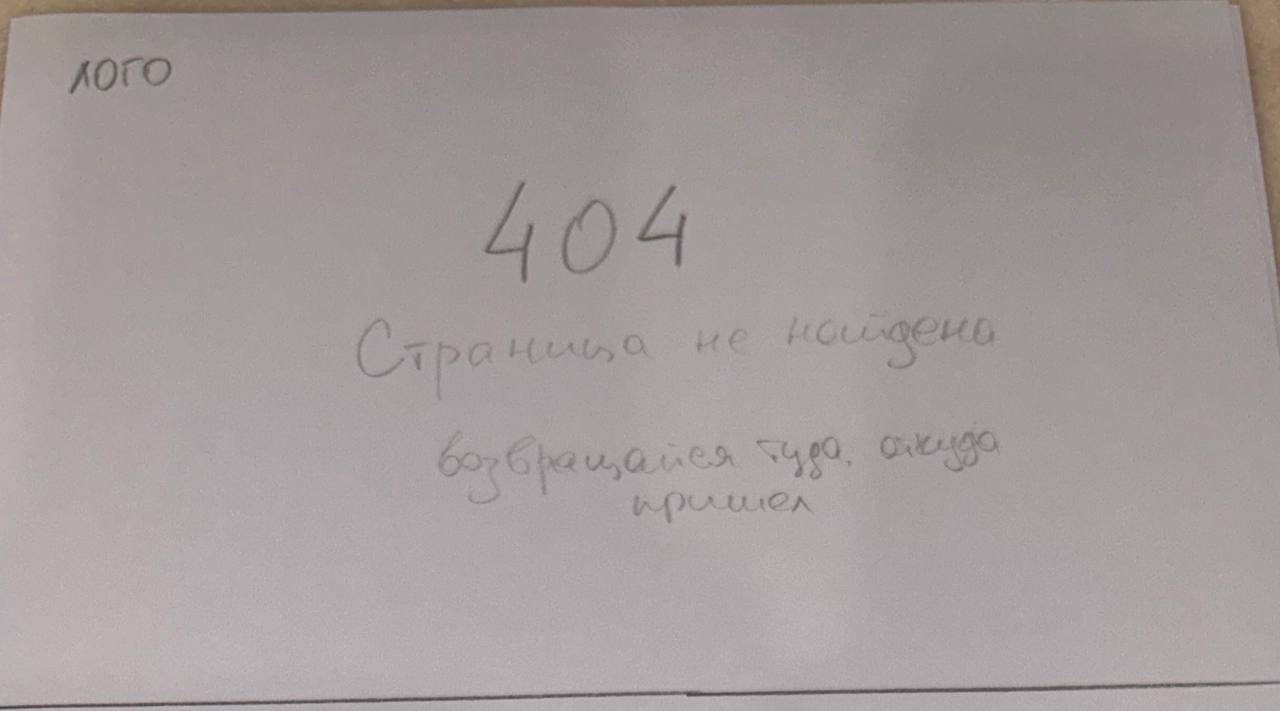 ЛОГО
404
Страница не найдена
возвращайся туда, откуда
пришел